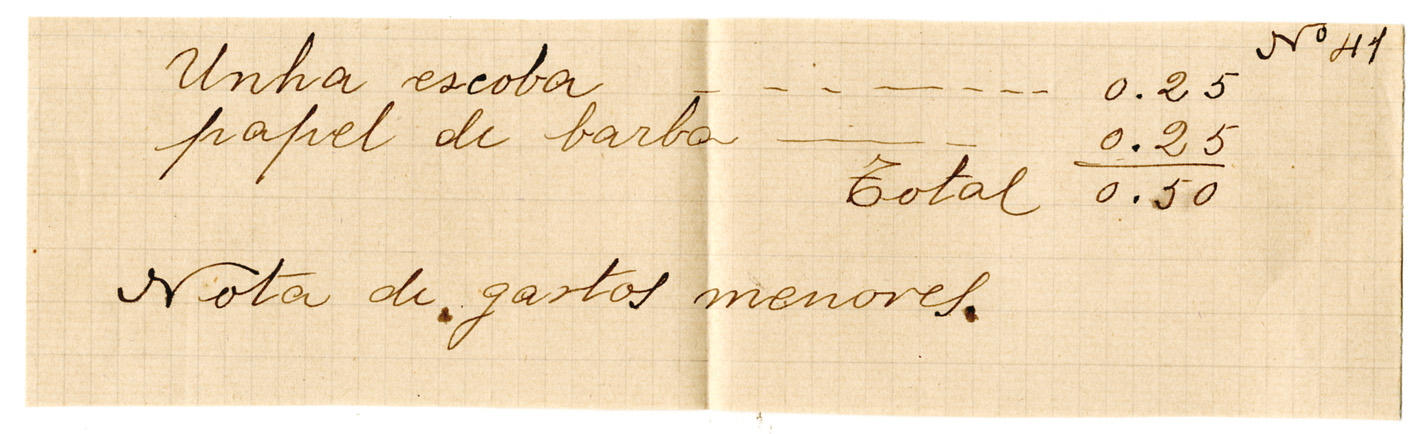 Nº 41
Unha escoba - - - - - - - - 0.25
papel de barba - - 0.25
Total 0.50
Nota de gastos menores.